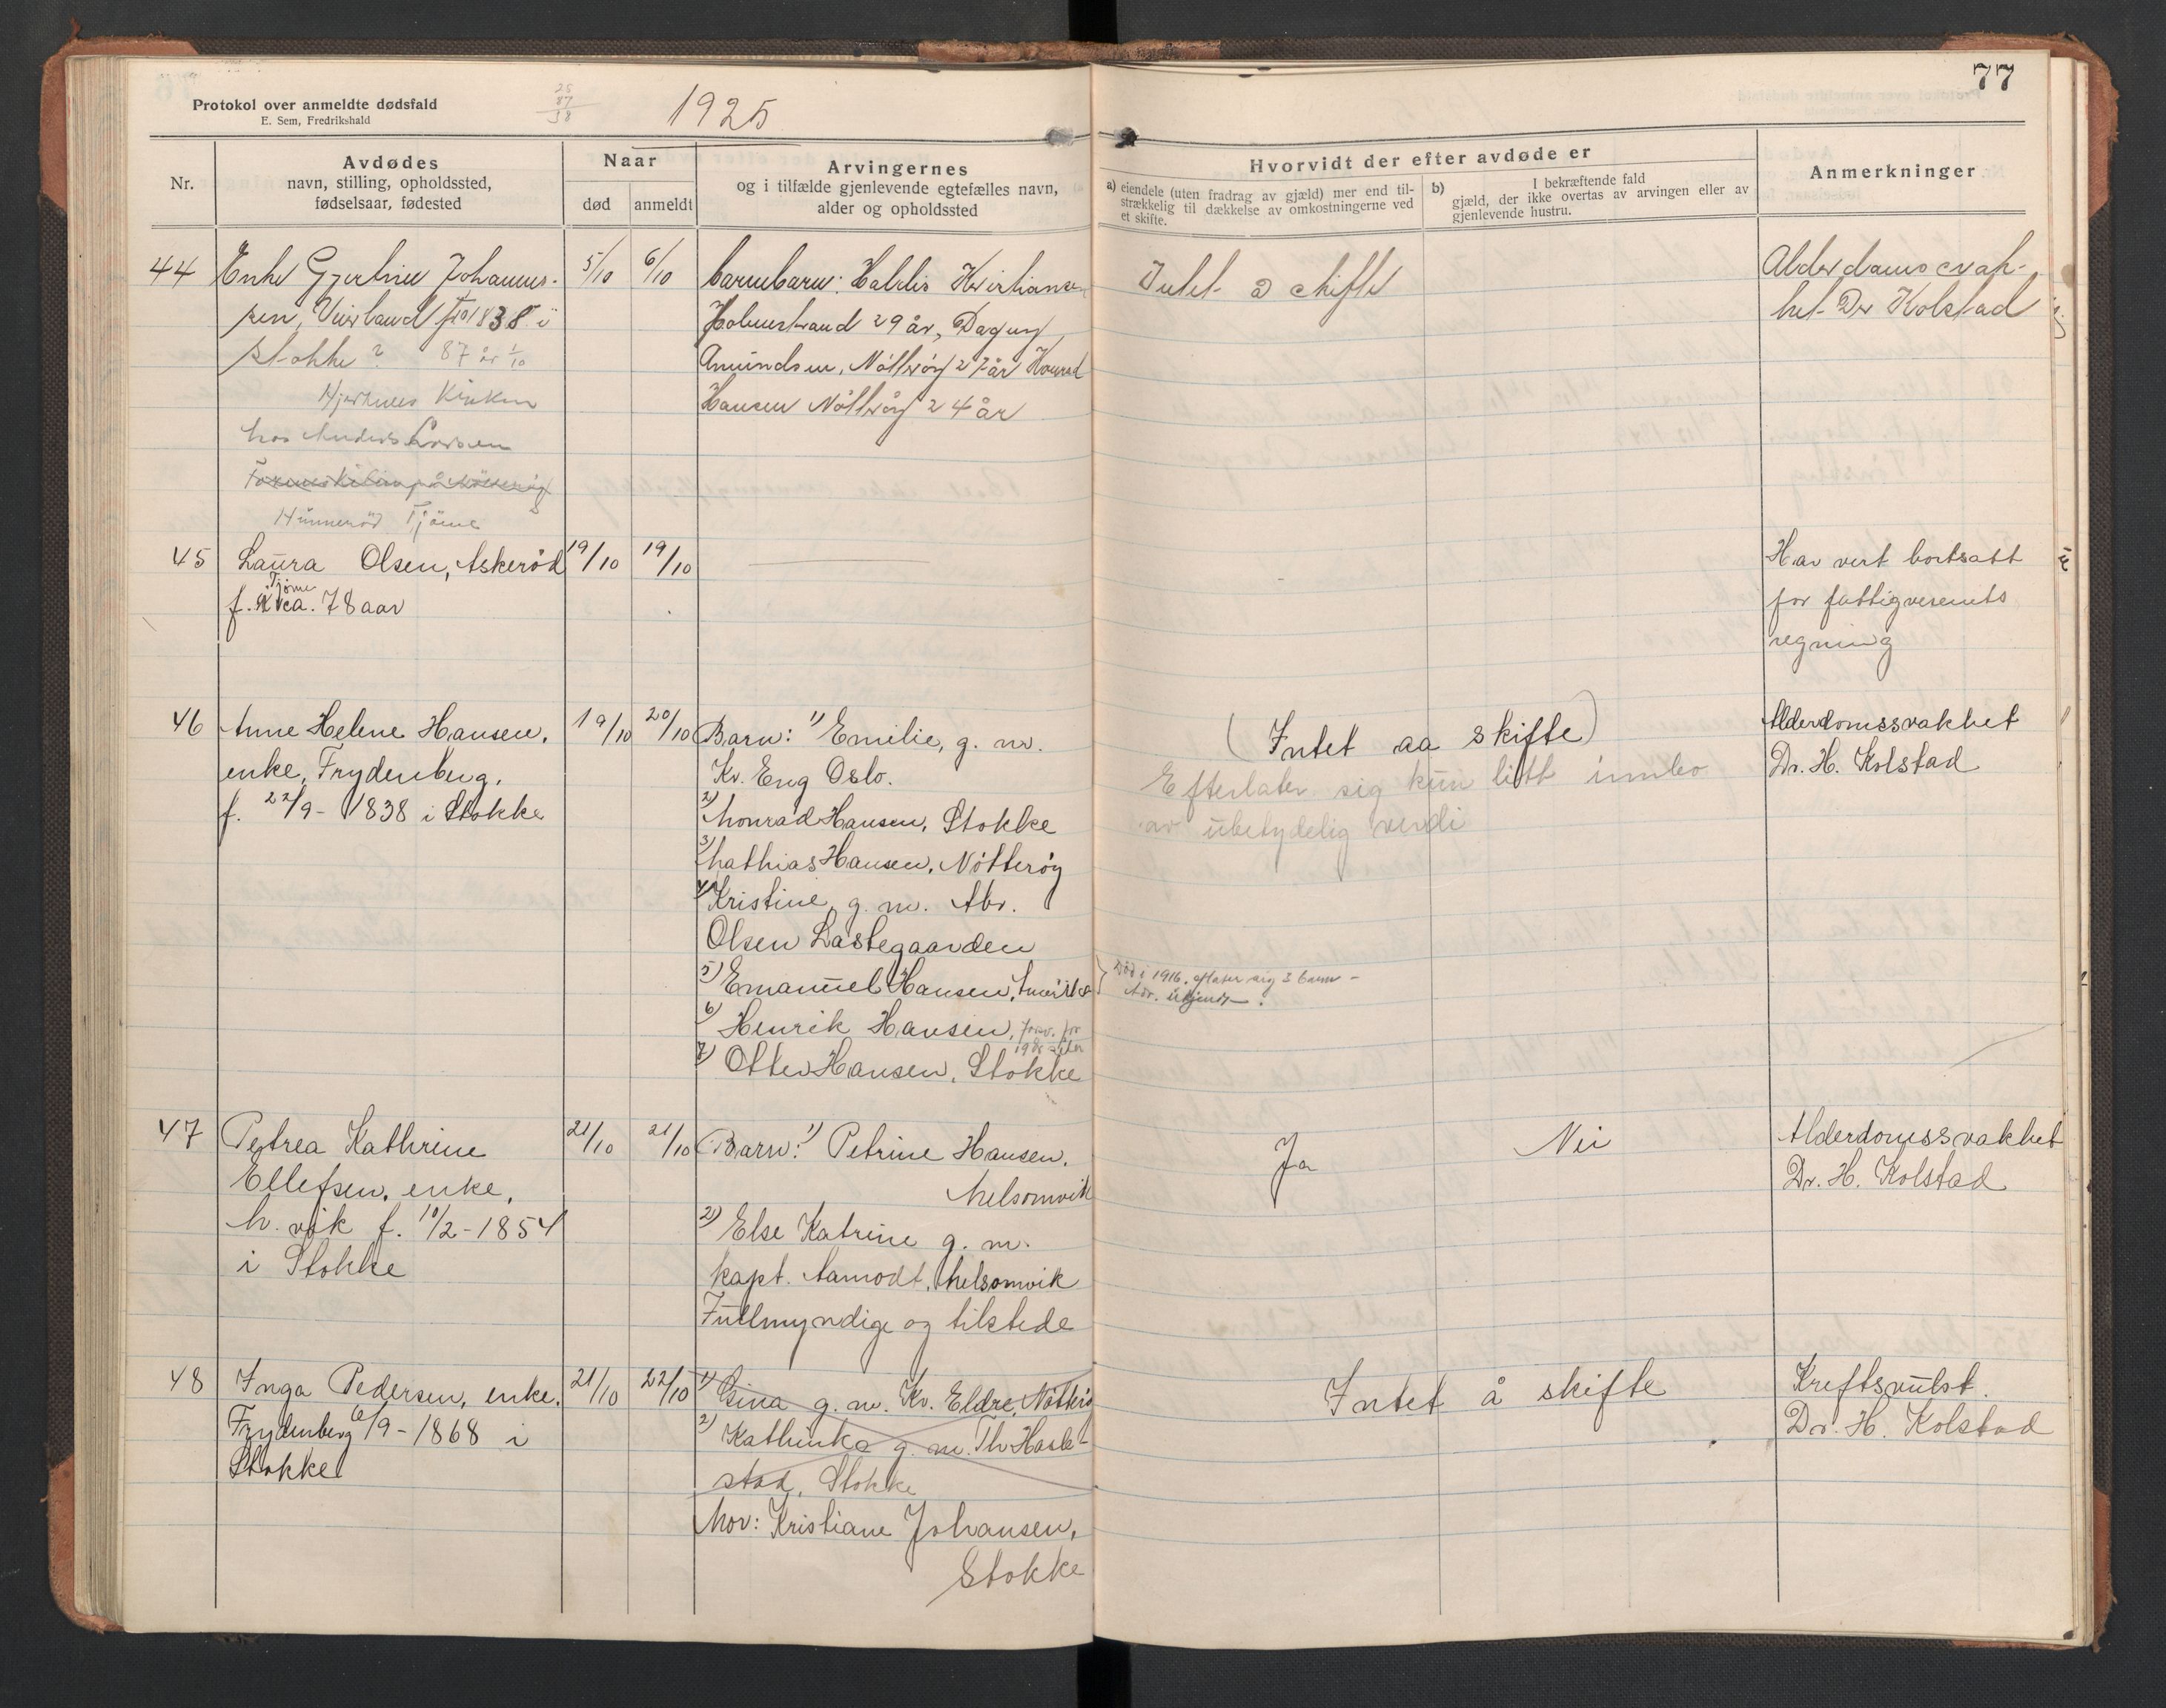 77
Protokol over anmeldte dødsfald
E. Sem, Fredrikshald
1925
Nr.
Avdødes
navn, stilling, opholdssted,
fødselsaar, fødested
Naar
død
anmeldt
Arvingernes
og i tilfælde gjenlevende egtefælles navn,
alder og opholdssted
Hvorvidt der efter avdøde er
a) eiendele (uten fradrag av gjæld) mer end til-
strækkelig til dækkelse av omkostningerne ved
et skifte.
b) I bekræftende fald
gjæld, der ikke overtas av arvingen eller av
gjenlevende hustru.
Anmerkninger
44
Enke Gjertine Johannes-
sen, 1838 i
Stokke? 87 år 1/10
hos Anders Larsen
Hünnerød Tjöme
5/10
6/10
Barnebarn: Haldis Kristiansen
Holmestrand 29 år, Dagny
Amündsen, Nötterøy 27 år
Hansen Nötterøy 24 år
Intet a skifte
Alderdomssvak-
het Dr Kolstad
45
Laüra Olsen, Askerød
Tjøme
f. ca. 78 aar
19/10
19/10
Har vert bortsatt
for fattigvesenets
regning
46
Anne Helene Hansen,
enke, Frydenberg,
f. 22/9 - 1838 i Stokke
19/10
20/10
Barn: 1) Emilie, g. m.
Kr. Eng Oslo.
2) Monrad Hansen, Stokke
3) Mathias Hansen, Nötterøy
4) Kristine, g. m. Abr.
Olsen Lastegaarden
5) Emanüel Hansen, Amerika
6) Henrik Hansen,
7) Otter Hansen, Stokke
(Intet aa skifte)
Efterlater sig kün litt innbo
av übetydelig verdi
Död i 1916, efterl. sig 3 barn -
Adr. ükjendt.
Alderdomssvakhet
Dr. H. Kolstad
47
Petrea Kathrine
Ellefsen, enke,
M. vik f. 10/2 - 1854
i Stokke
21/10
21/10
Barn: 1) Petrine Hansen,
Melsomvik
2) Else Katrine g. m.
kapt. Aamodt, Melsomvik
Fullmyndige og tilstede
Ja
Nei
Alderdomssvakhet
Dr. H. Kolstad
48
Inga Pedersen, enke,
Frydenberg 6/9 - 1868 i
Stokke
21/10
22/10
1) Gina g. m. Kr. Eldre, Nötterø
2) Kathinka g. m. Th Hasle-
stad, Stokke
Mor: Kristiane Johansen,
Stokke
Intet å skifte
Kreftsvülst.
Dr. H. Kolstad